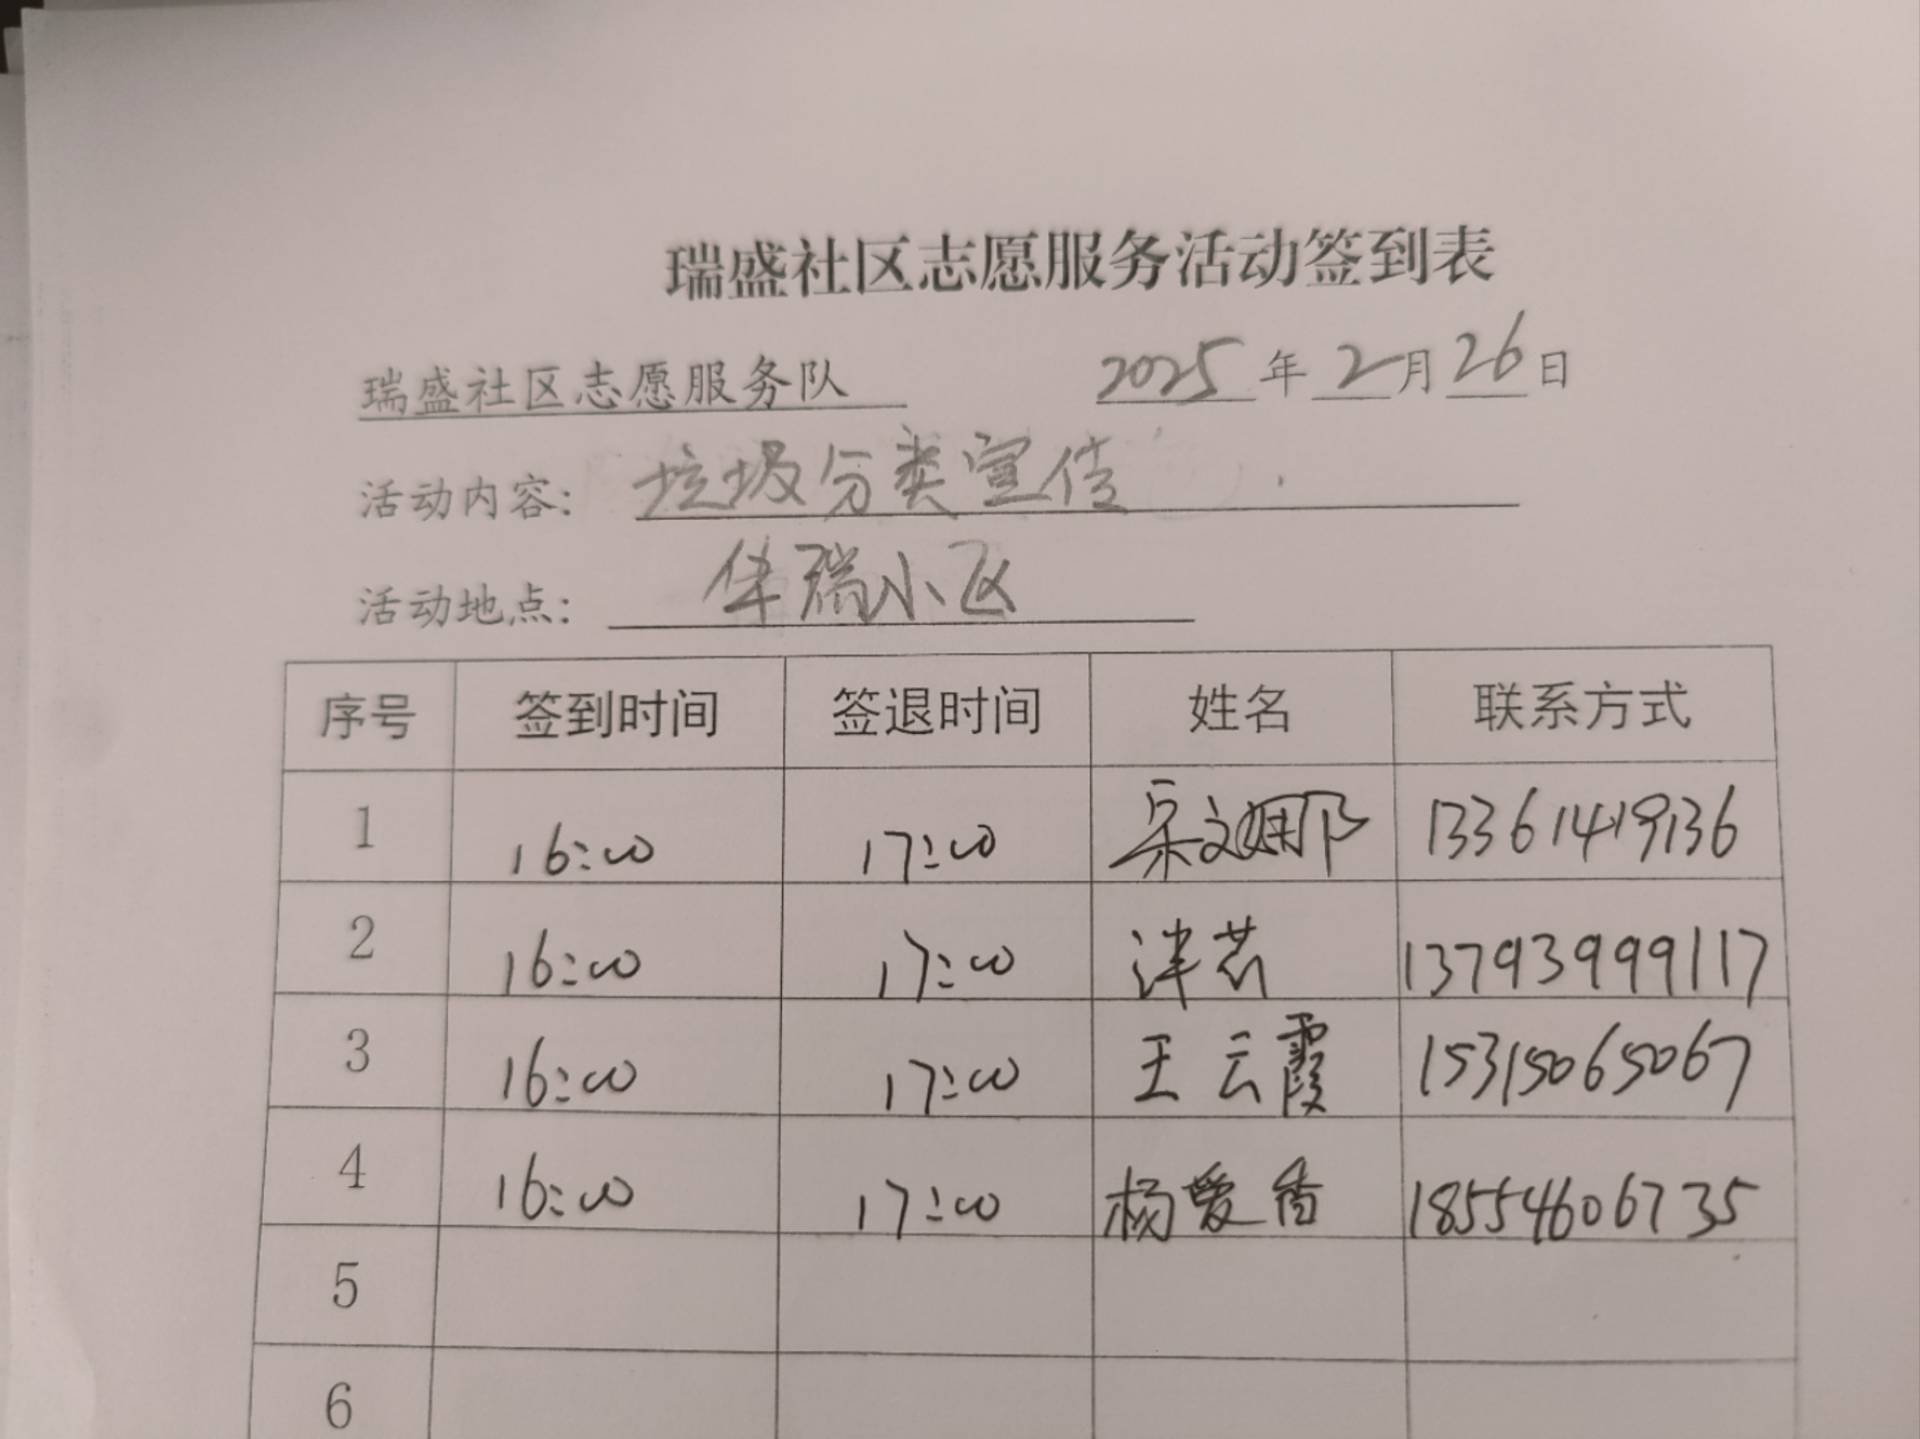 瑞盛社区志愿服务活动签到表
瑞盛社区志愿服务队 2025年2月26日
活动内容：垃圾分类宣传
活动地点：华瑞小区
序号 签到时间 签退时间 姓名 联系方式
1 16:00 17:00 宋文娜 13361419136
2 16:00 17:00 13793999117
3 16:00 17:00 王云霞 15315065067
4 16:00 17:00 杨爱香 18554606735
5
6